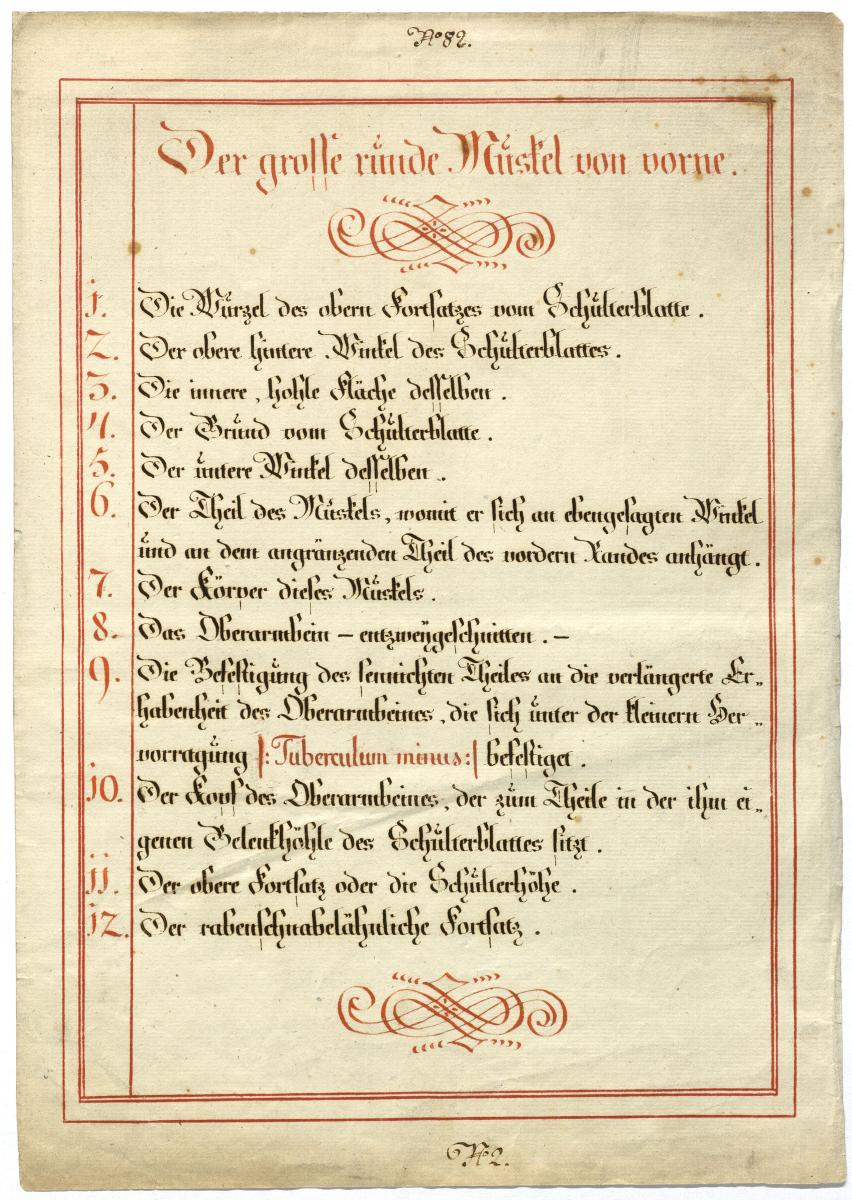 No 82.
Der grosse runde Muskel von vorne.
1. Die Wurzel des obern Fortsatzes vom Schulterblatte.
2. Der obere hintere Winkel des Schulterblattes.
3. Die innere, hohle Fläche desselben.
4. Der Grund vom Schulterblatte.
5. Der untere Winkel desselben.
6. Der Theil des Muskels, womit er sich an ebengesagten Winkel
und an dem angränzenden Theil des vordern Randes anhängt.
7. Der Körper dieses Muskels.
8. Das Oberarmbein – entzweygeschnitten. –
9. Die Befestigung des sennichten Theiles an die verlängerte Er„
habenheit des Oberarmbeines, die sich unter der kleinern Her„
vorragung |: Tuberculum minus:| befestiget.
10. Der Kopf des Oberarmbeines, der zum Theile in der ihm ei„
genen Gelenkhöhle des Schulterblattes sitzt.
11. Der obere Fortsatz oder die Schulterhöhe.
12. Der rabenschnabelähnliche Fortsatz.
No 2.